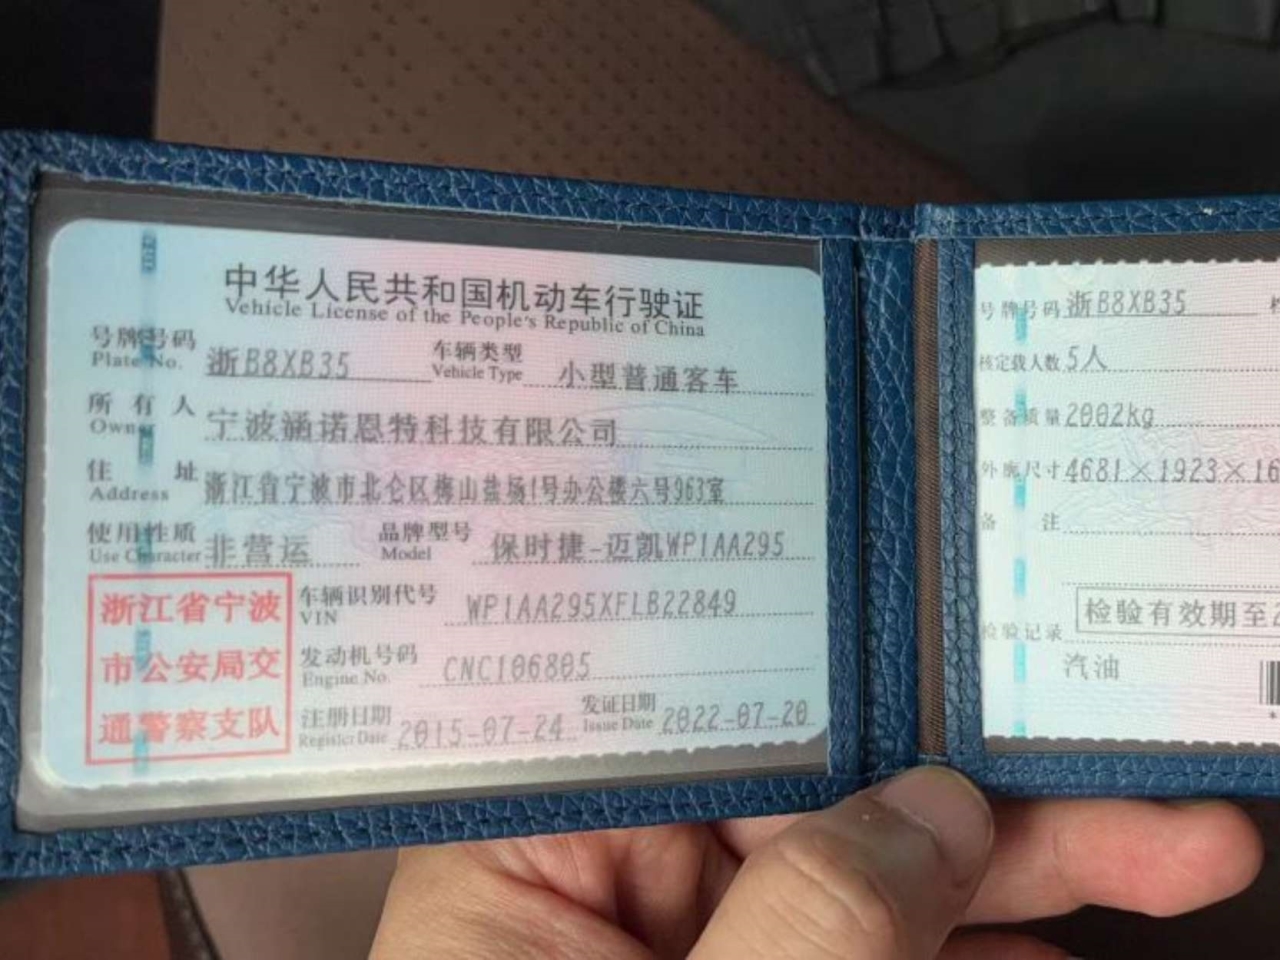 中华人民共和国机动车行驶证
Vehicle License of the People's Republic of China
号牌号码 浙B8XB35 车辆类型 小型普通客车
Plate No. Vehicle Type
所有人 宁波涵诺恩特科技有限公司
Owner
住址 浙江省宁波市北仑区梅山盐场1号办公楼六号963室
Address
使用性质 非营运 品牌型号 保时捷-迈凯WP1AA295
Use Character Model
浙江省宁波
市公安局交
通警察支队
车辆识别代号 WP1AA295XFLB22849
VIN
发动机号码 CNC106805
Engine No.
注册日期 2015-07-24 发证日期 2022-07-20
Register Date Issue Date
号牌号码 浙B8XB35
核定载人数 5人
整备质量 2002kg
外廓尺寸 4681×1923×16
备注
检验有效期至
检验记录
汽油